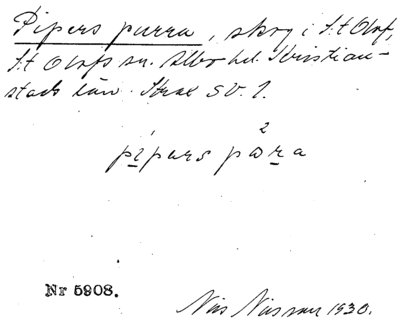 Pipers purra, skog i S:t Olof,
S:t Olofs sn. Albo hd. Kristian-
stads län. Skrae SV. 1.
pipers pora
Nr 5908.
Nils Nilsson 1930.